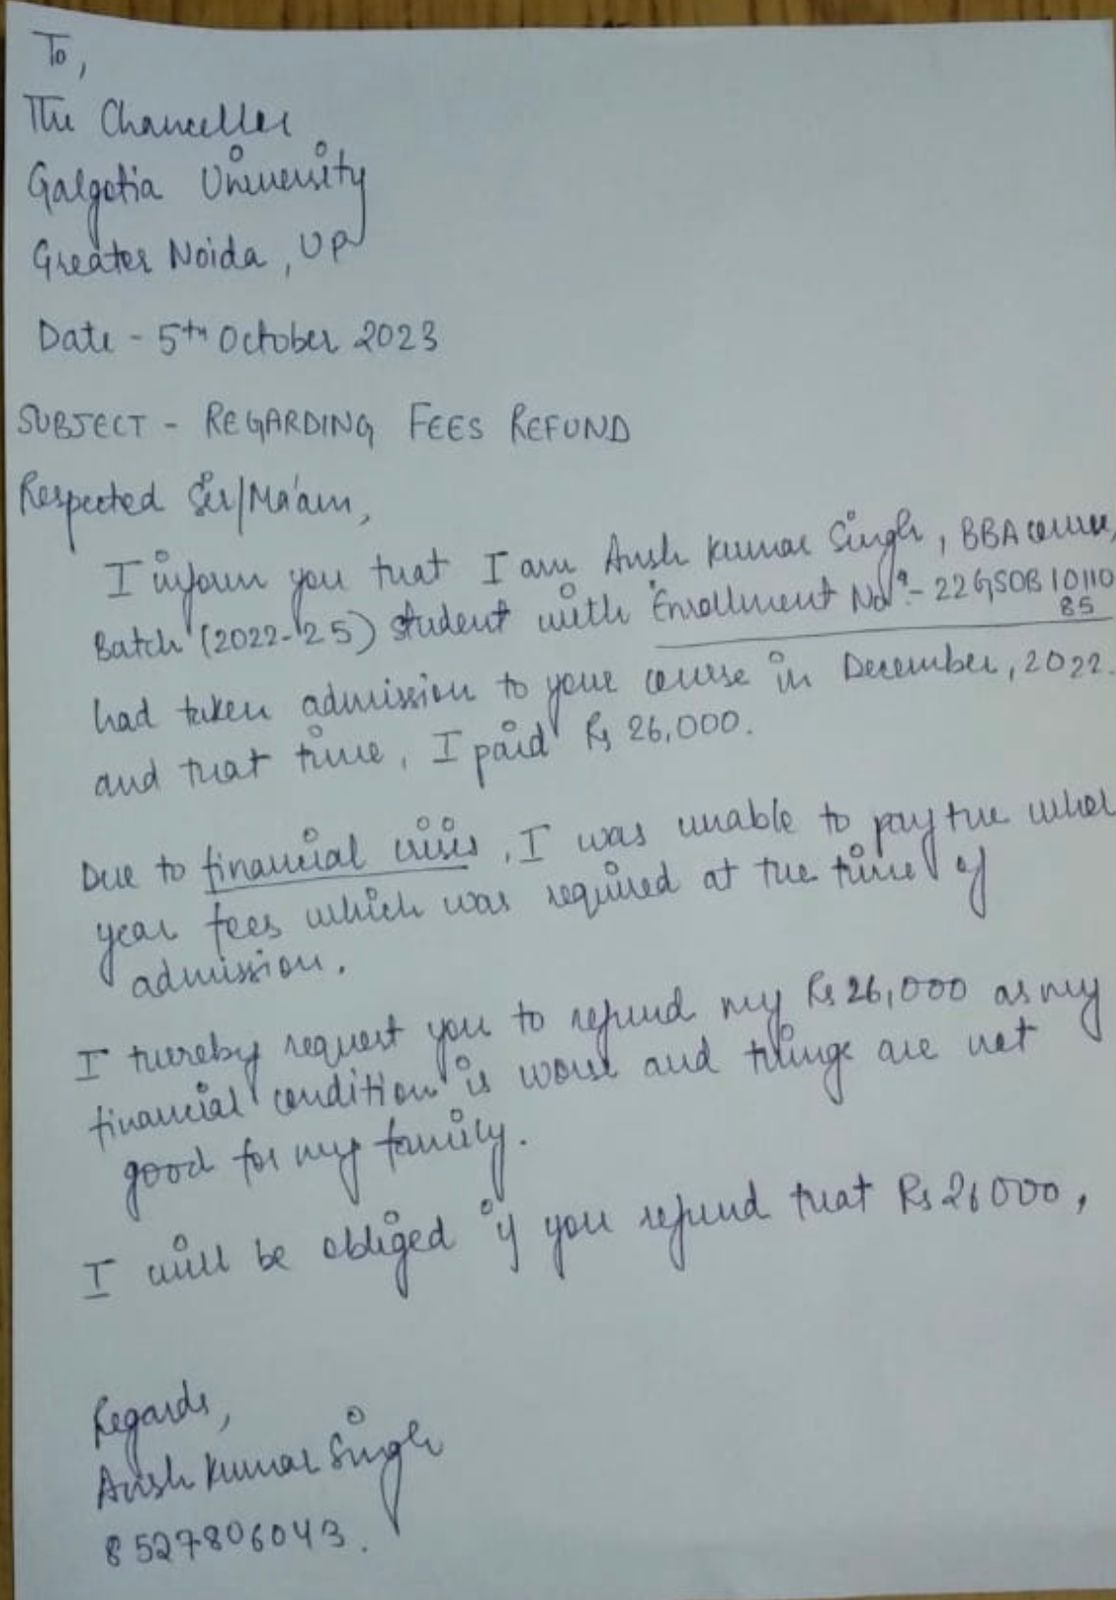 To,
The Chancellor
Galgotia University
Greater Noida, UP
Date - 5th October 2023
SUBJECT - REGARDING FEES REFUND
Respected Sir/Ma'am,
I inform you that I am Ansh Kumar Singh, BBA course,
Batch (2022-25) student with Enrollment No:- 22GSOB10110
85
had taken admission to your course in December, 2022.
and that time, I paid Rs 26,000.
Due to financial crisis, I was unable to pay the whol
year fees which was required at the time of
admission.
I thereby request you to refund my Rs 26,000 as my
financial condition is worse and things are not
good for my family.
I will be obliged if you refund that Rs 26000,
Regards,
Ansh Kumar Singh
8527806043.